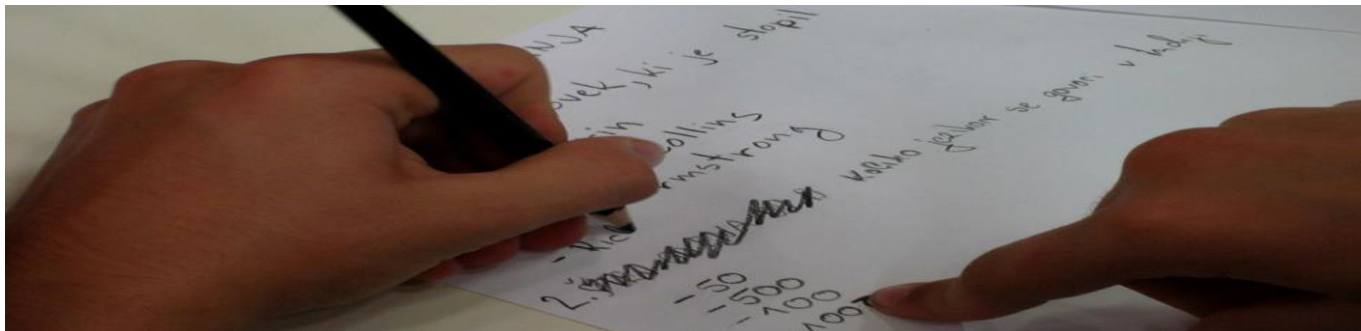 NJA
ovek, ki je stopil
rin
ollins
rmstrong
- Ric
2. koliko jezikov se govori v Indiji
- 50
- 500
- 100